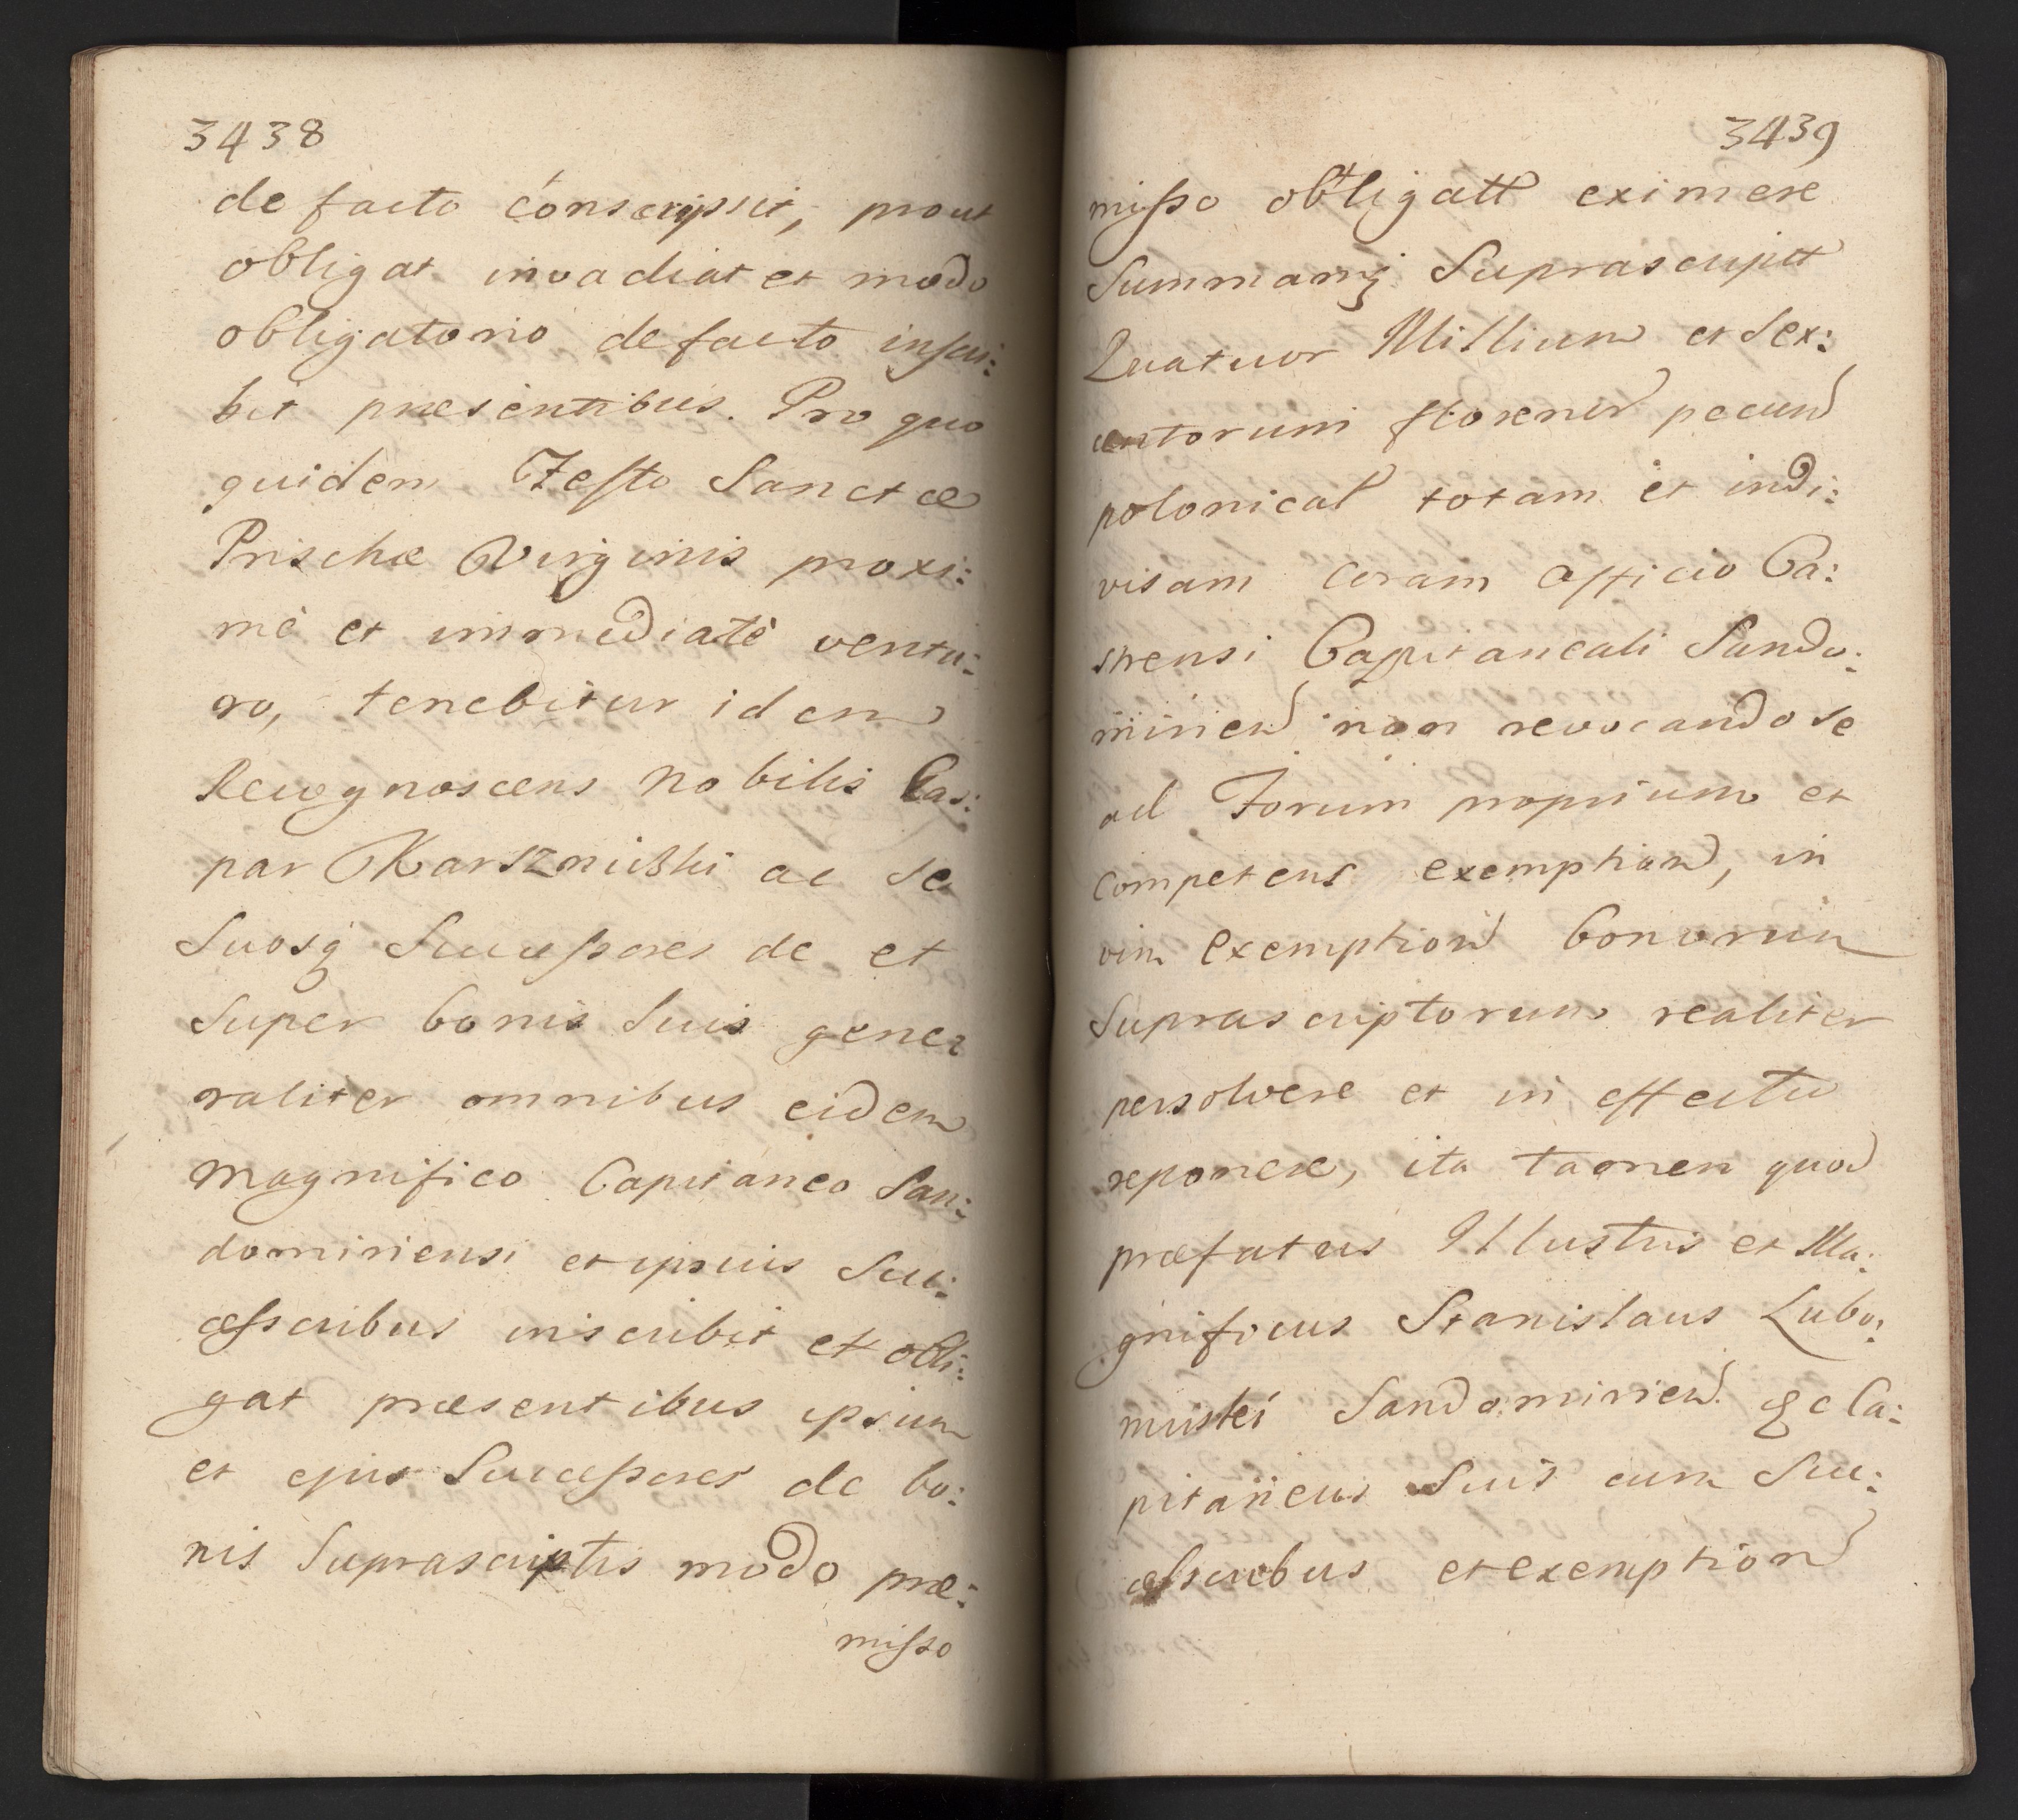 3438
de facto conscripsit, prout
obligat invadiat et modo
obligatorio de facto inscri:
bit præsentibus. Pro quo
quidem Festo Sanctæ
Prischæ Virginis proxi:
mè et immediatè ventu:
ro, tenebitur idem
Recognoscens Nobilis Cas:
par Karsznicki ac se
Suosq Successores de et
Super bonis Suis gene:
raliter omnibus eidem
Magnifico Capitaneo San:
domiriensi et ipsius Suc:
cessoribus inscribit et obli:
gat præsentibus ipsum
et ejus Successores de bo:
nis Suprascriptis modo præ:
misso
3439
misso obligatt eximere
Summamq Suprascriptt
Quatuor Millium et Sex:
centorum florenor pecun
polonical totam et indi:
visam coram Officio Ca:
strensi Capitaneali Sando:
mirien non revocando se
ad Forum proprium et
competens exemption, in
vim exemption bonorum
Suprascriptorum realiter
persolvere et in effectu
reponere, ita tamen quod
præfatus Illustris et Ma:
gnificus Stanislaus Lubo:
mirski Sandomirien. &c Ca:
pitaneus Suis cum Suc:
cessoribus et exemption